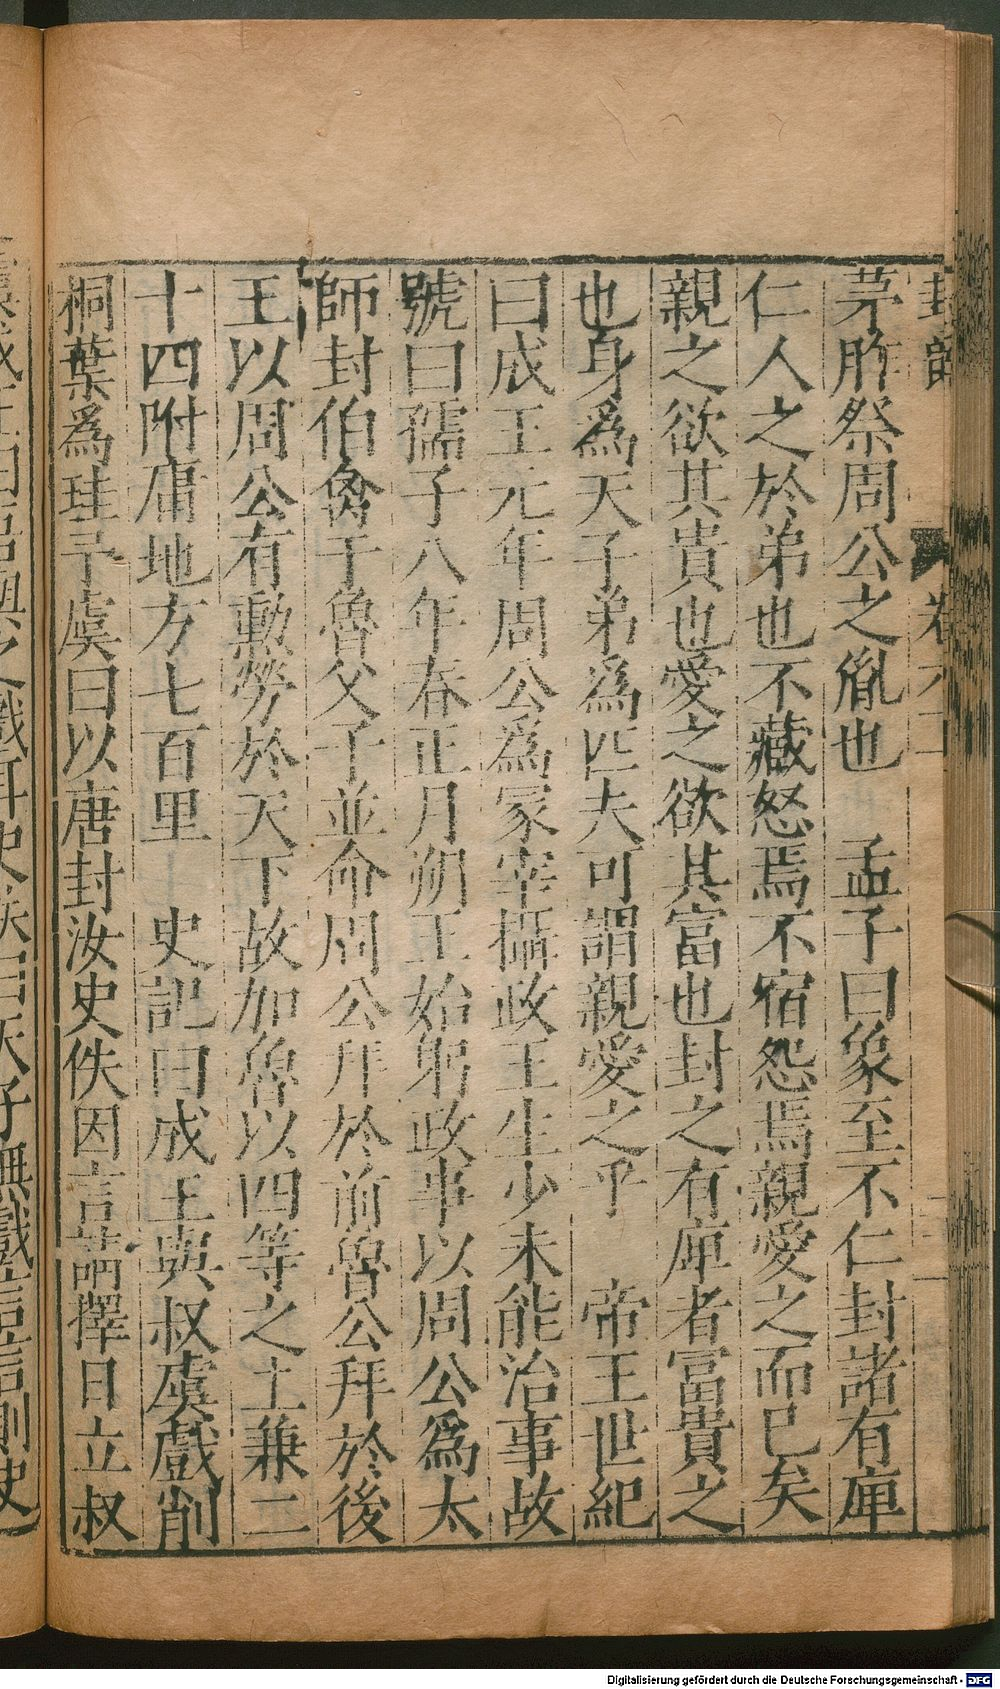 茅胙祭周公之胤也　孟子曰象至不仁封諸有庳
仁人之於弟也不藏怒焉不宿怨焉親愛之而已矣
親之欲其貴也愛之欲其富也封之有庳者富貴之
也身爲天子弟爲匹夫可謂親愛之乎　帝王世紀
曰成王元年周公爲冢宰攝政王生少未能治事故
號曰孺子八年春正月朔王始躬政事以周公爲太
師封伯禽于魯父子並命周公拜於前魯公拜於後
王以周公有勳勞於天下故加魯以四等之土兼二
十四附庸地方七百里　史記曰成王與叔虞戲削
桐葉爲珪予虞曰以唐封汝史佚因言請擇日立叔
Digitalisierung gefördert durch die Deutsche Forschungsgemeinschaft - DFG